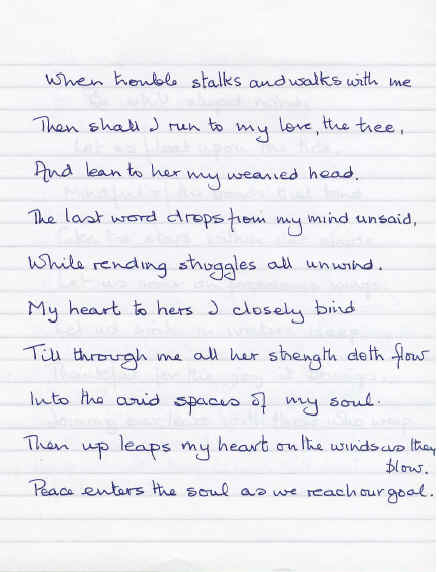 When trouble stalks and walks with me
Then shall I run to my love, the tree,
And lean to her my wearied head.
The last word drops from my mind unsaid,
While rending struggles all unwind.
My heart to hers I closely bind
Till through me all her strength doth flow
Into the arid spaces of my soul.
Then up leaps my heart on the winds as they
blow.
Peace enters the soul as we reach our goal.